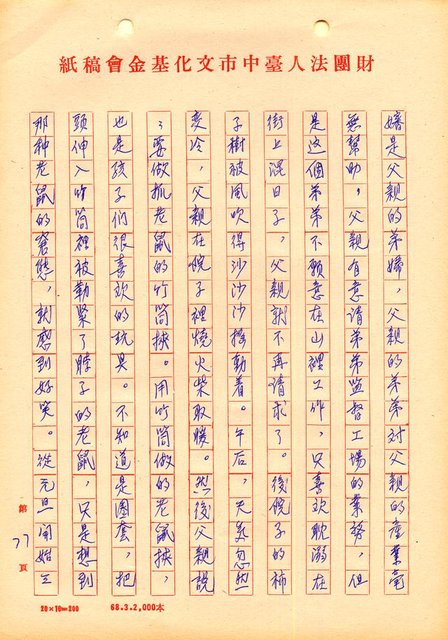 財團法人臺中市文化基金會稿紙
嬸是父親的弟婦，父親的弟弟對父親的產業毫
無幫助，父親有意請弟弟監督工場的業務，但
是這個弟弟不願意在山裡工作，只喜歡耽溺在
街上混日子，父親就不再請求了。後院子的柿
子樹被風吹得沙沙搔動着。午后，天氣忽然
变冷，父親在院子裡燒火柴取暖。然後父親說
：要做抓老鼠的竹筒挾。用竹筒做的老鼠挾，
也是孩子们很喜欢的玩具。不知道是圈套，把
頭伸入竹筒裡被勒緊了脖子的老鼠，只是想到
那种老鼠的窘態，就感到好笑。從元旦開始三
第 77 頁
20×10=200 68.3.2,000本